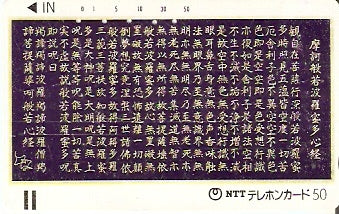 ◀ IN
0 1 3 5 10 30 50
摩訶般若波羅蜜多心経
觀自在菩薩行深般若波羅蜜
多時照見五蘊皆空度一切苦
厄舎利子色不異空空不異色
色即是空空即是色受想行識
亦復如是舎利子是諸法空相
不生不滅不垢不浄不増不減
是故空中無色無受想行識無
眼耳鼻舌身意無色声香味触
法無眼界乃至無意識界無無
明亦無無明尽乃至無老死亦
無老死尽無苦集滅道無智亦
無得以無所得故菩提薩埵依
般若波羅蜜多故心無罣礙無
罣礙故無有恐怖遠離一切顛
倒夢想究竟涅槃三世諸佛依
般若波羅蜜多故得阿耨多羅
三藐三菩提故知般若波羅蜜
多是大神呪是大明呪是無上
呪是無等等呪能除一切苦真
実不虚故説般若波羅蜜多呪
即説呪曰
羯諦羯諦波羅羯諦波羅僧羯
諦菩提薩婆訶般若心経
NTT テレホンカード 50